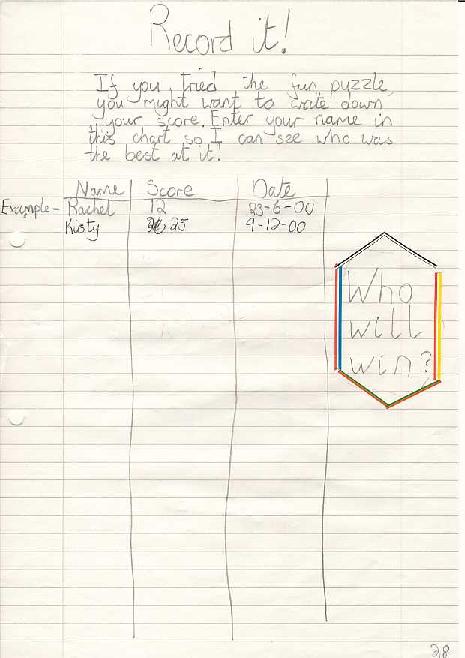 Record it!
If you tried the fun puzzle,
you might want to write down
your score. Enter your name in
this chart so I can see who was
the best at it.
Name Score Date
Example - Rachel 12 23-6-00
Kirsty 25 9-12-00
Who
will
win?
28